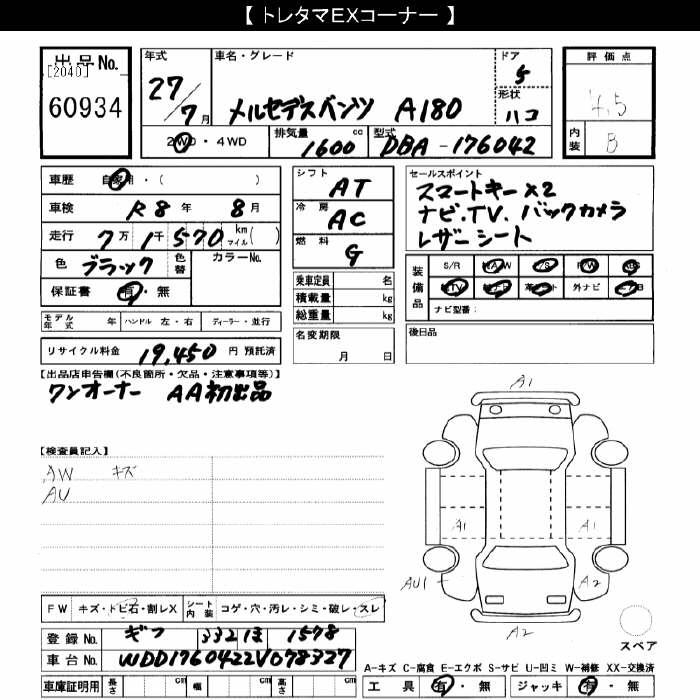 【 トレタマEXコーナー 】
出品No.
[2040]
60934
年式
27/7月
車名・グレード
メルセデスベンツ A180
ドア
5
形状
ハコ
評価点
4.5
内装
B
2WD・4WD
排気量
1600 cc
型式
DBA-176042
車歴 自家用・( )
車検 R8年 8月
走行 7万1千570 km マイル( )
色 ブラック 色替
カラーNo.
保証書 有・無
シフト
AT
冷房
AC
燃料
G
乗車定員 名
積載量 kg
総重量 kg
名変期限
月 日
セールスポイント
スマートキー×2
ナビ.TV. バックカメラ
レザーシート
装備品
S/R 純A/W P/S P/W ABS
純TV 純ナビ 革シート 外ナビ エアB
ナビ型番:
後日品
モデル年式 年 ハンドル 左・右 ディーラー・並行
リサイクル料金 19,450 円 預託済
【出品店申告欄(不良箇所・欠品・注意事項等)】
ワンオーナー AA初出品
【検査員記入】
AW キズ
AU
A1
A1
A1
AU1
A2
A2
スペア
FW キズ・トビ石・割レX シート内装 コゲ・穴・汚レ・シミ・破レ・スレ
登録No. ギフ 332 ほ 1578
車台No. WDD1760422V078327
車庫証明用 長さ cm 幅 cm 高さ cm
A-キズ C-腐食 E-エクボ S-サビ U-凹ミ W-補修 XX-交換済
工具 有・無 ジャッキ 有・無